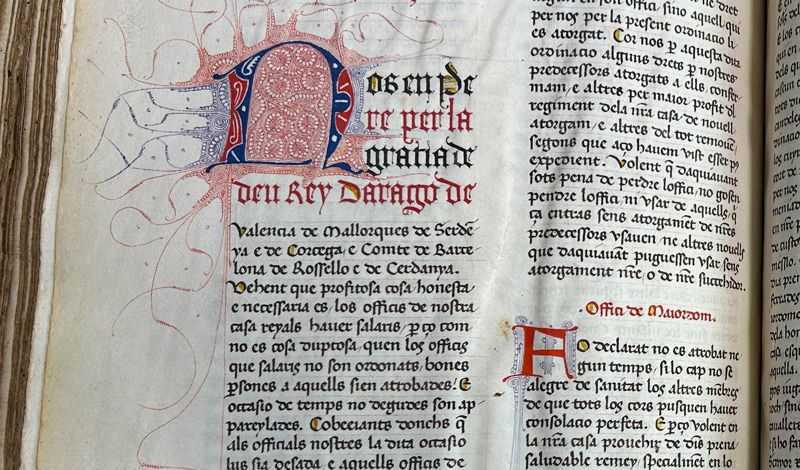 Nos en Pe
re per la
gratia de
deu Rey Darago de
Valencia de Mallorques de Serde
ya e de Corcega e Comte de Barce
lona de Rossello e de Cerdanya.
Vehent que profitosa cosa honesta
e necessaria es los officis de nostra
casa reyals hauer salaris, p ço com
no es cosa duptosa, quen los officis
que salaris no son ordonats, bones
psones a aquells sien atrobades. E
occasio de temps no degudes son ap
pareylades. Cobeeiants donchs q
als officials nostres la dita occasio
lus sia desada e aquells officis de
en son offici sino aquell qui
per nos per la present ordinacio li
es atorgat. Cor nos p aquesta dita
ordinacio alguns drets p nostres
predecessors atorgats a ells, confer
mam, e altres per maior profit del
regiment dela nra casa de nouell
atorgam, e altres del tot remouem
segons que aço hauem vist esser p
expedient. Volent q daquiauant
sots pena de perdre loffici, no gosen
pendre loffici ni vsar de aquells, q
ça entras sens atorgament de nres
predecessors vsauen ne altres nouells
que daquiauant puguessen vsar sens
atorgament nre, o de nre succehidor.
Offici de Maiordom.
Ho declarat no es atrobat ne
gun temps, si lo cap no fi
alegre de sanitat los altres mēbres
de que tots los cors pusquen hauer
consolacio perfeta. E pço volent en
la nra casa prouehir de diis prena
saludable remey, specialment en lo